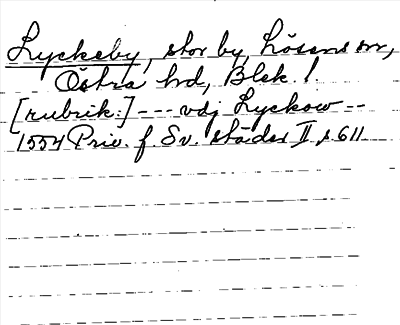 Lyckeby, stor by, Lösens sn,
Östra hd, Blek. l.
[rubrik:] --- vdj Lyckow --
1554 Priv. f. Sv. städer II s 611